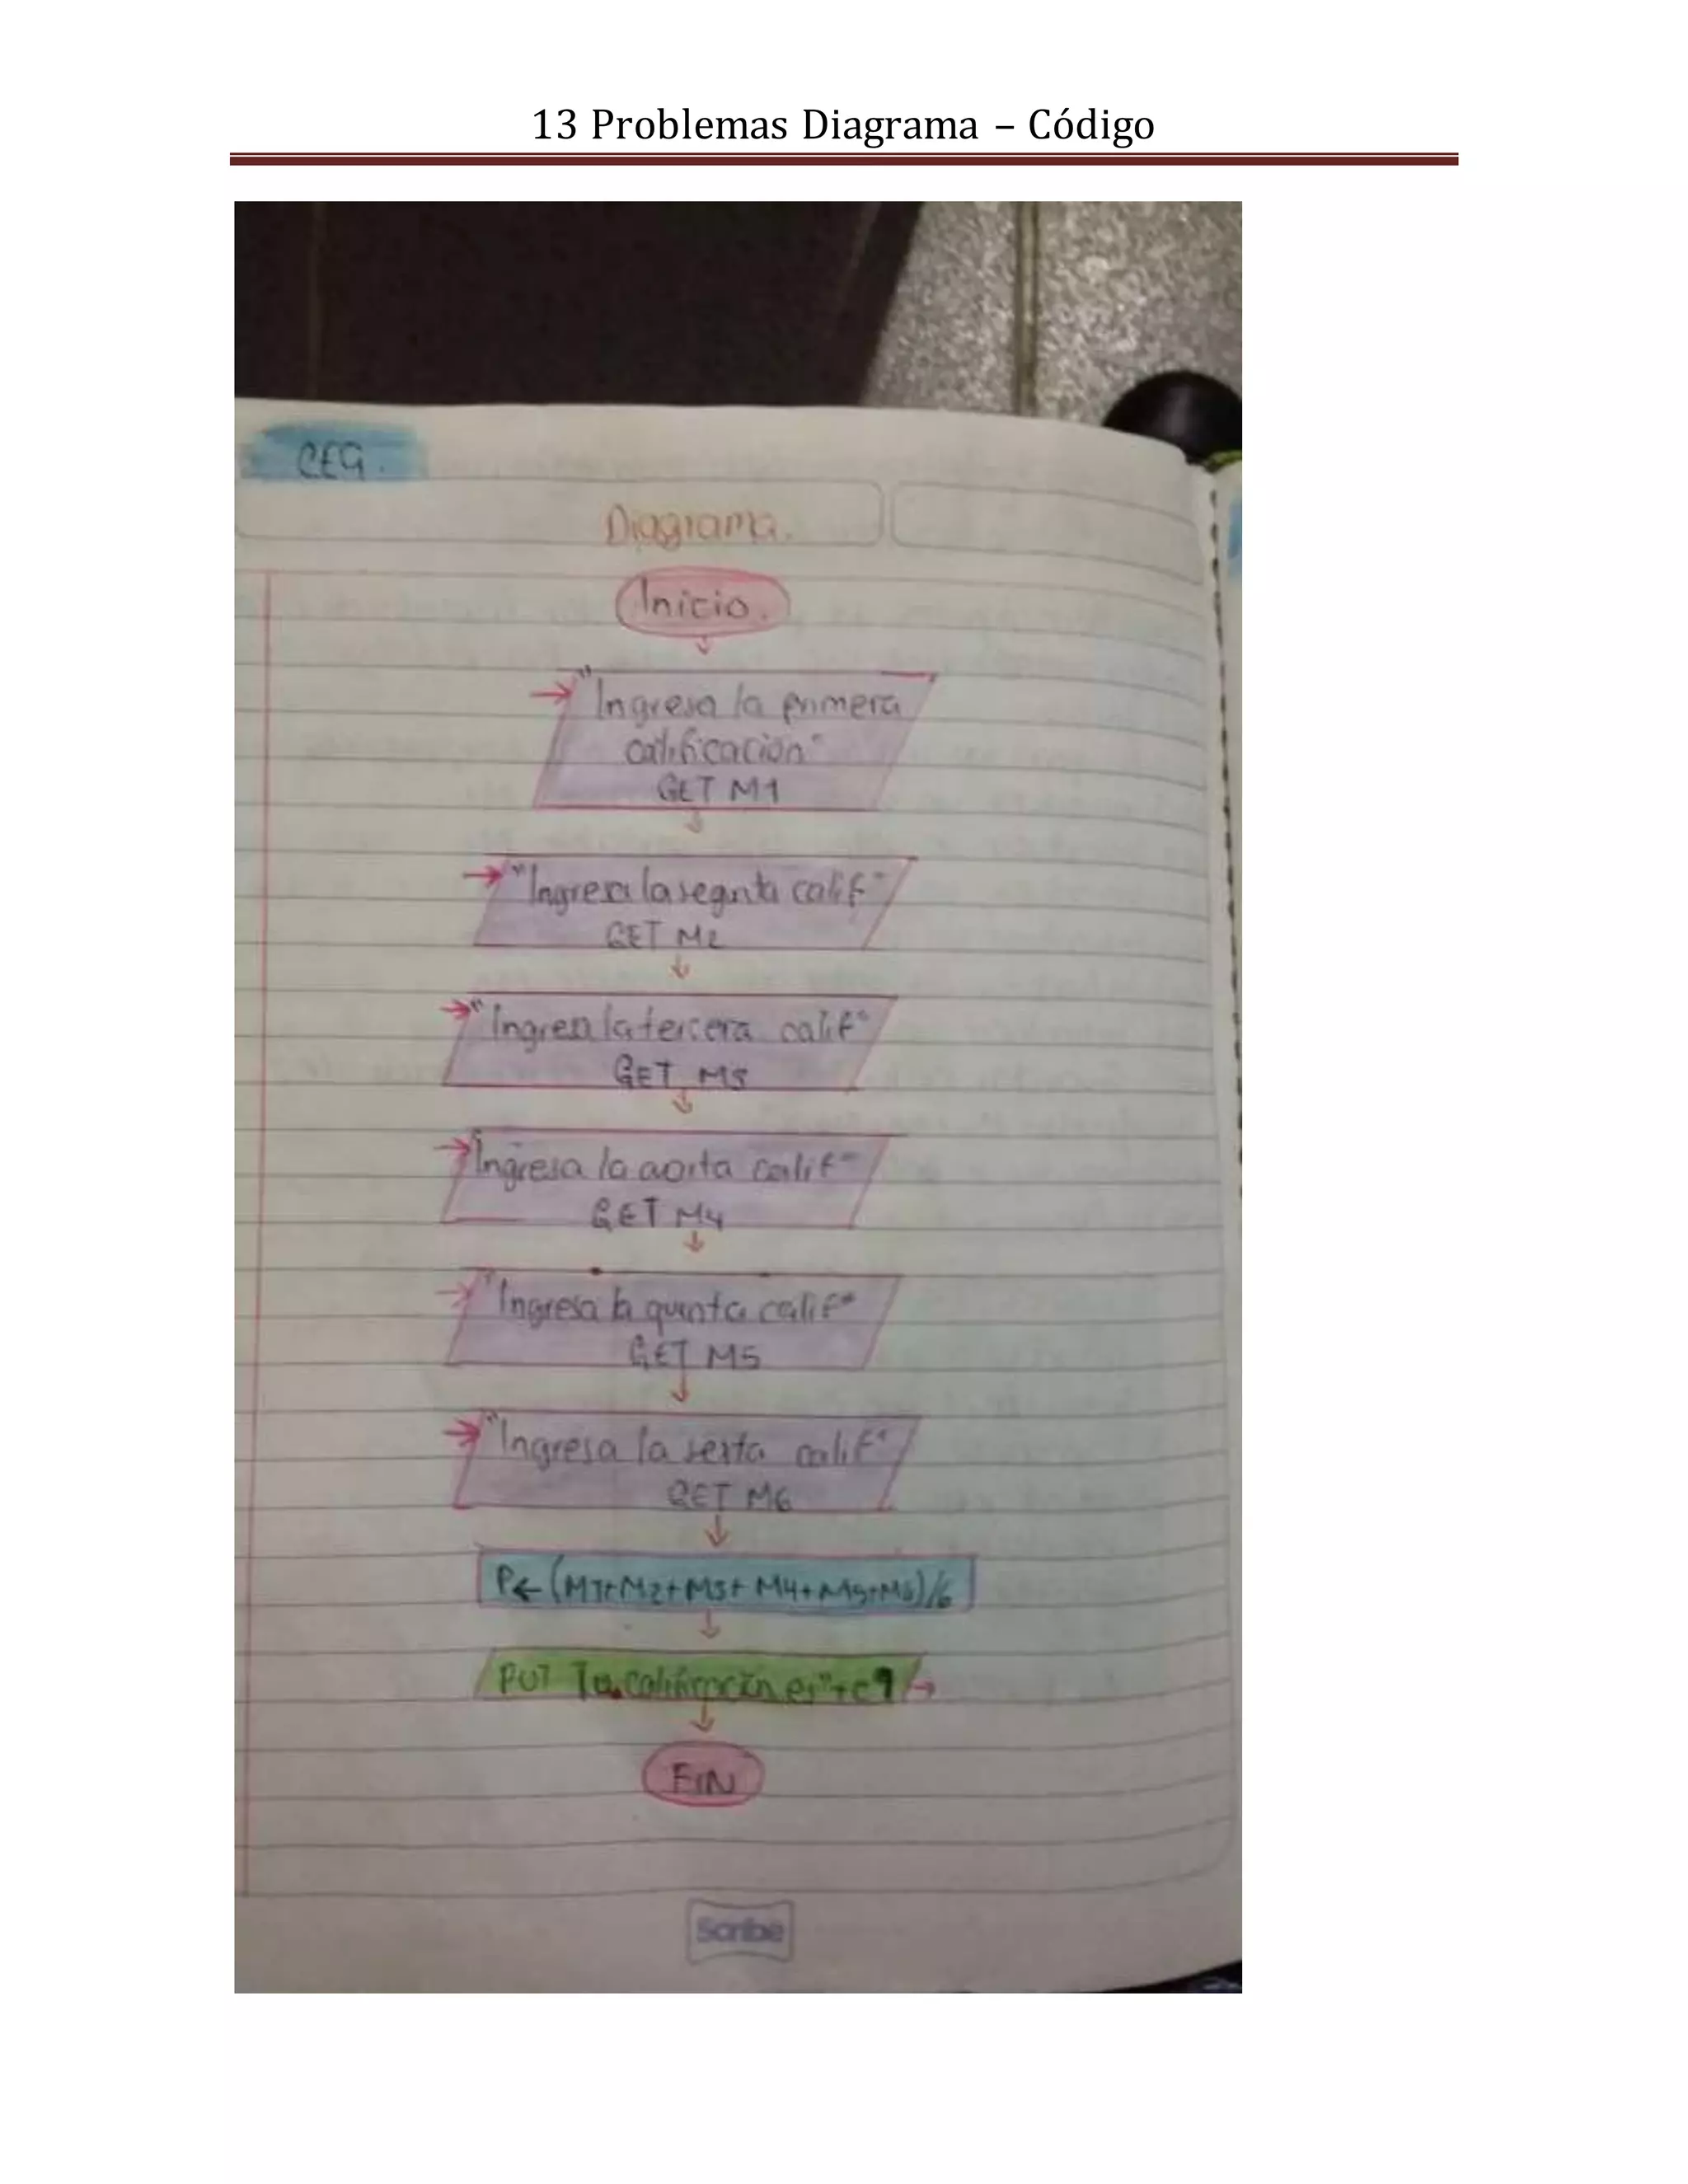 13 Problemas Diagrama – Código
CE9.
Diagrama.
Inicio.
"Ingresa la primera
calificación"
GET M1
"Ingresa la segunta calif"
GET M2
"Ingresa la tercera calif"
GET M3
"Ingresa la calif"
GET M4
"Ingresa la quinta calif"
GET M5
"Ingresa la sexta calif"
GET M6
P← (M1+M2+M3+ M4+M5+M6)/6
PUT calificación es"+c
FIN
Scribe